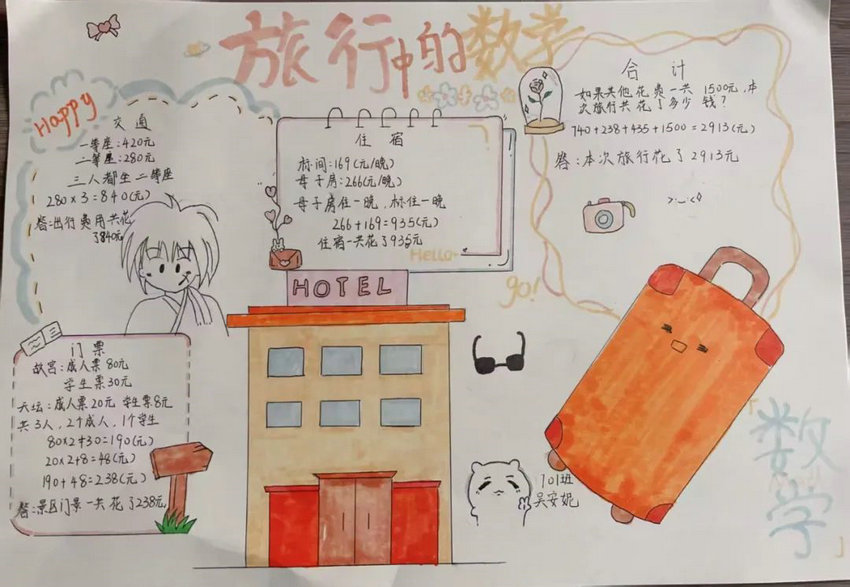 旅行中的数学
Happy
交通
一等座:420元
二等座:280元
三人都坐二等座
280×3=840(元)
答:出行费用共花
了840元
住宿
标间:169(元/晚)
母子房:266(元/晚)
母子房住一晚,标住一晚
266+169=935(元)
住宿一共花了935元
Hello~
go!
合计
如果其他花费一共1500元,本
次旅行共花了多少钱?
740+238+435+1500=2913(元)
答:本次旅行花了2913元
HOTEL
门票
故宫:成人票80元
学生票30元
天坛:成人票20元 学生票8元
共3人,2个成人,1个学生
80×2+30=190(元)
20×2+8=48(元)
190+48=238(元)
答:景区门景一共花了238元
101班
吴安妮
「数学」